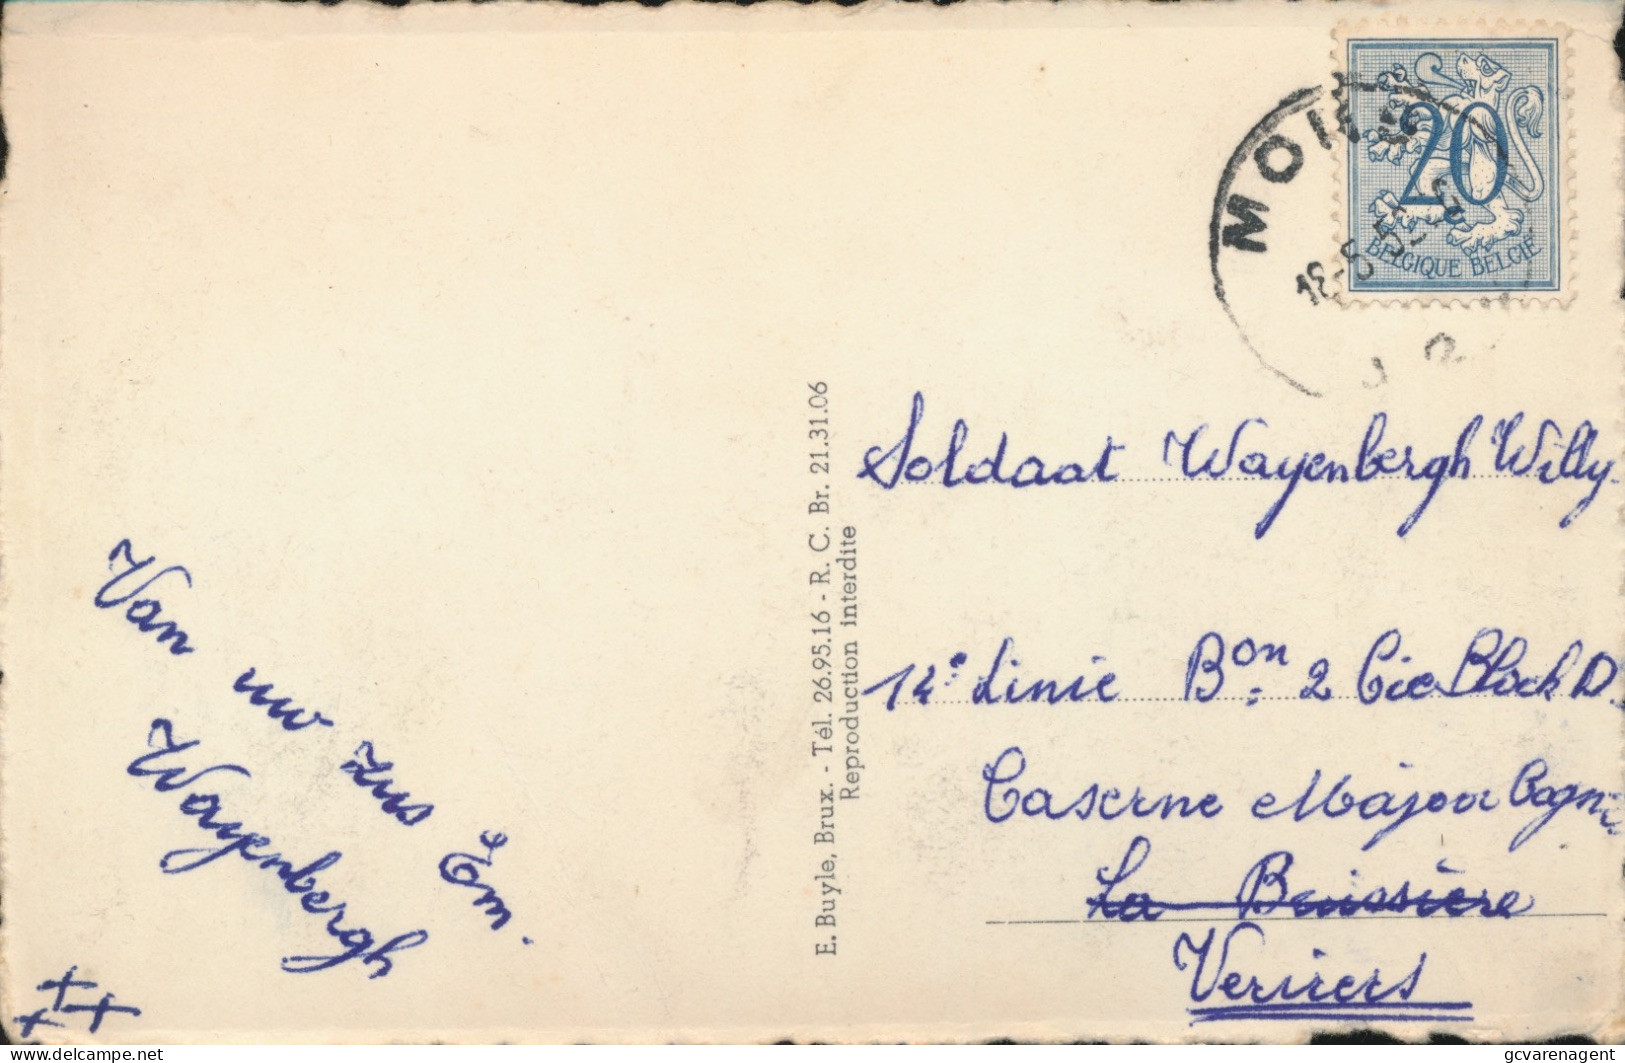 20
BELGIQUE BELGIË
Soldaat Wayenbergh Willy
14e Linie Bon 2 Cie Block D.
Caserne Major
La Buissière
Verviers
Van uw zus Em.
Wayenbergh
E. Buyle, Brux. - Tél. 26.95.16 - R. C. Br. 21.31.06
Reproduction interdite
delcampe.net
gcvarenagent